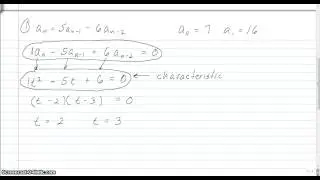 ① aₙ = 5aₙ₋₁ - 6aₙ₋₂    a₀ = 7  a₁ = 16
1aₙ - 5aₙ₋₁ + 6aₙ₋₂ = 0
1t² - 5t + 6 = 0 ← characteristic
(t - 2)(t - 3) = 0
t = 2  t = 3